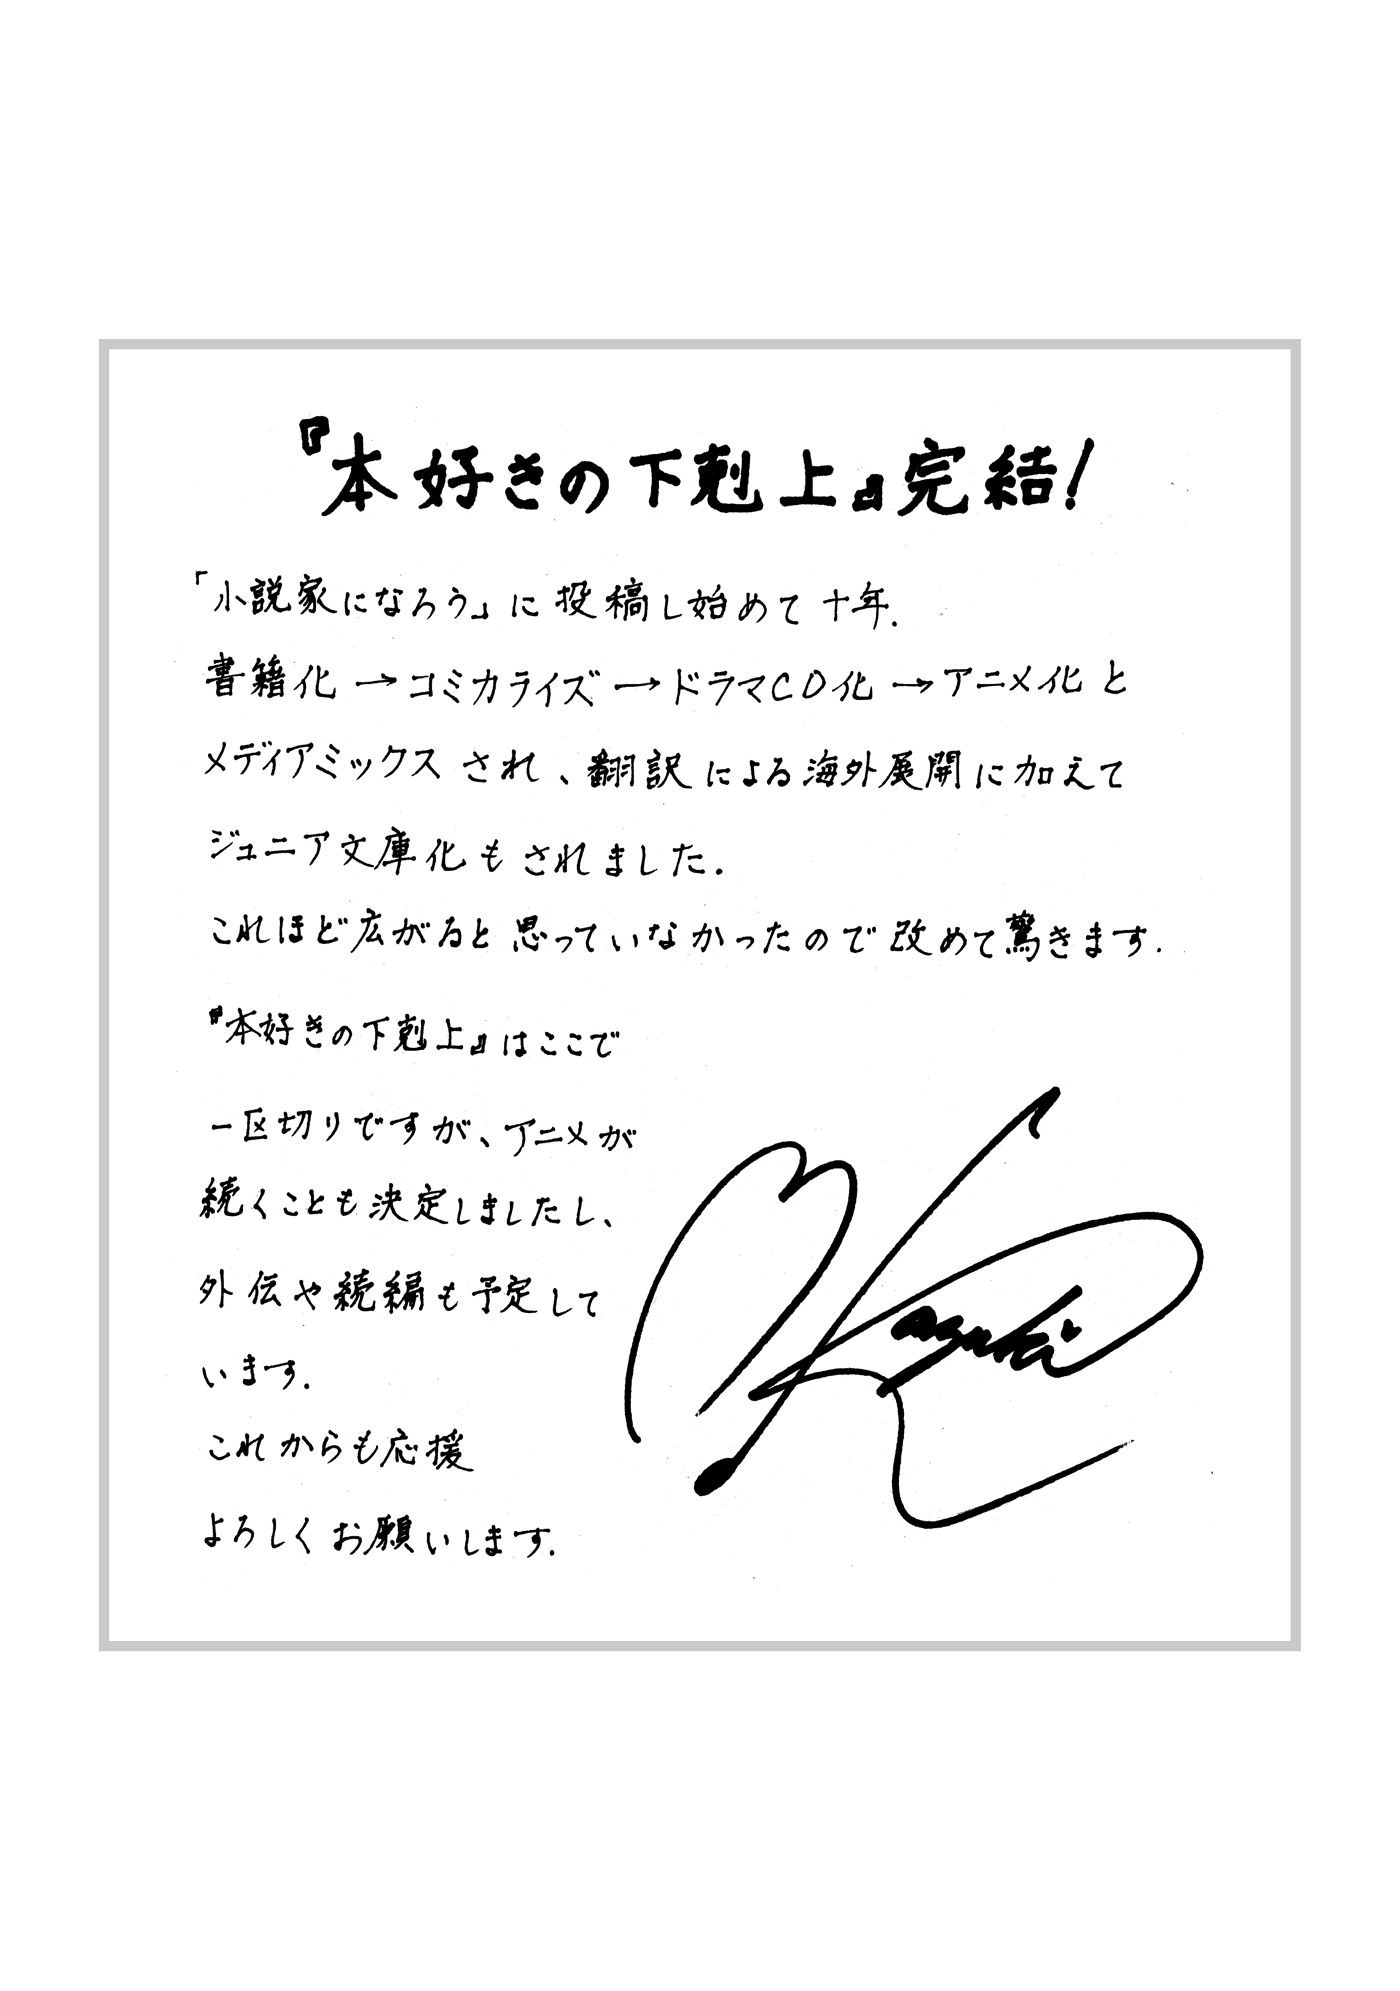 『本好きの下剋上』完結!
「小説家になろう」に投稿し始めて十年.
書籍化→コミカライズ→ドラマCD化→アニメ化と
メディアミックスされ、翻訳による海外展開に加えて
ジュニア文庫化もされました.
これほど広がると思っていなかったので改めて驚きます.
『本好きの下剋上』はここで
一区切りですが、アニメが
続くことも決定しましたし、
外伝や続編も予定して
います.
これからも応援
よろしくお願いします.
Kazuki